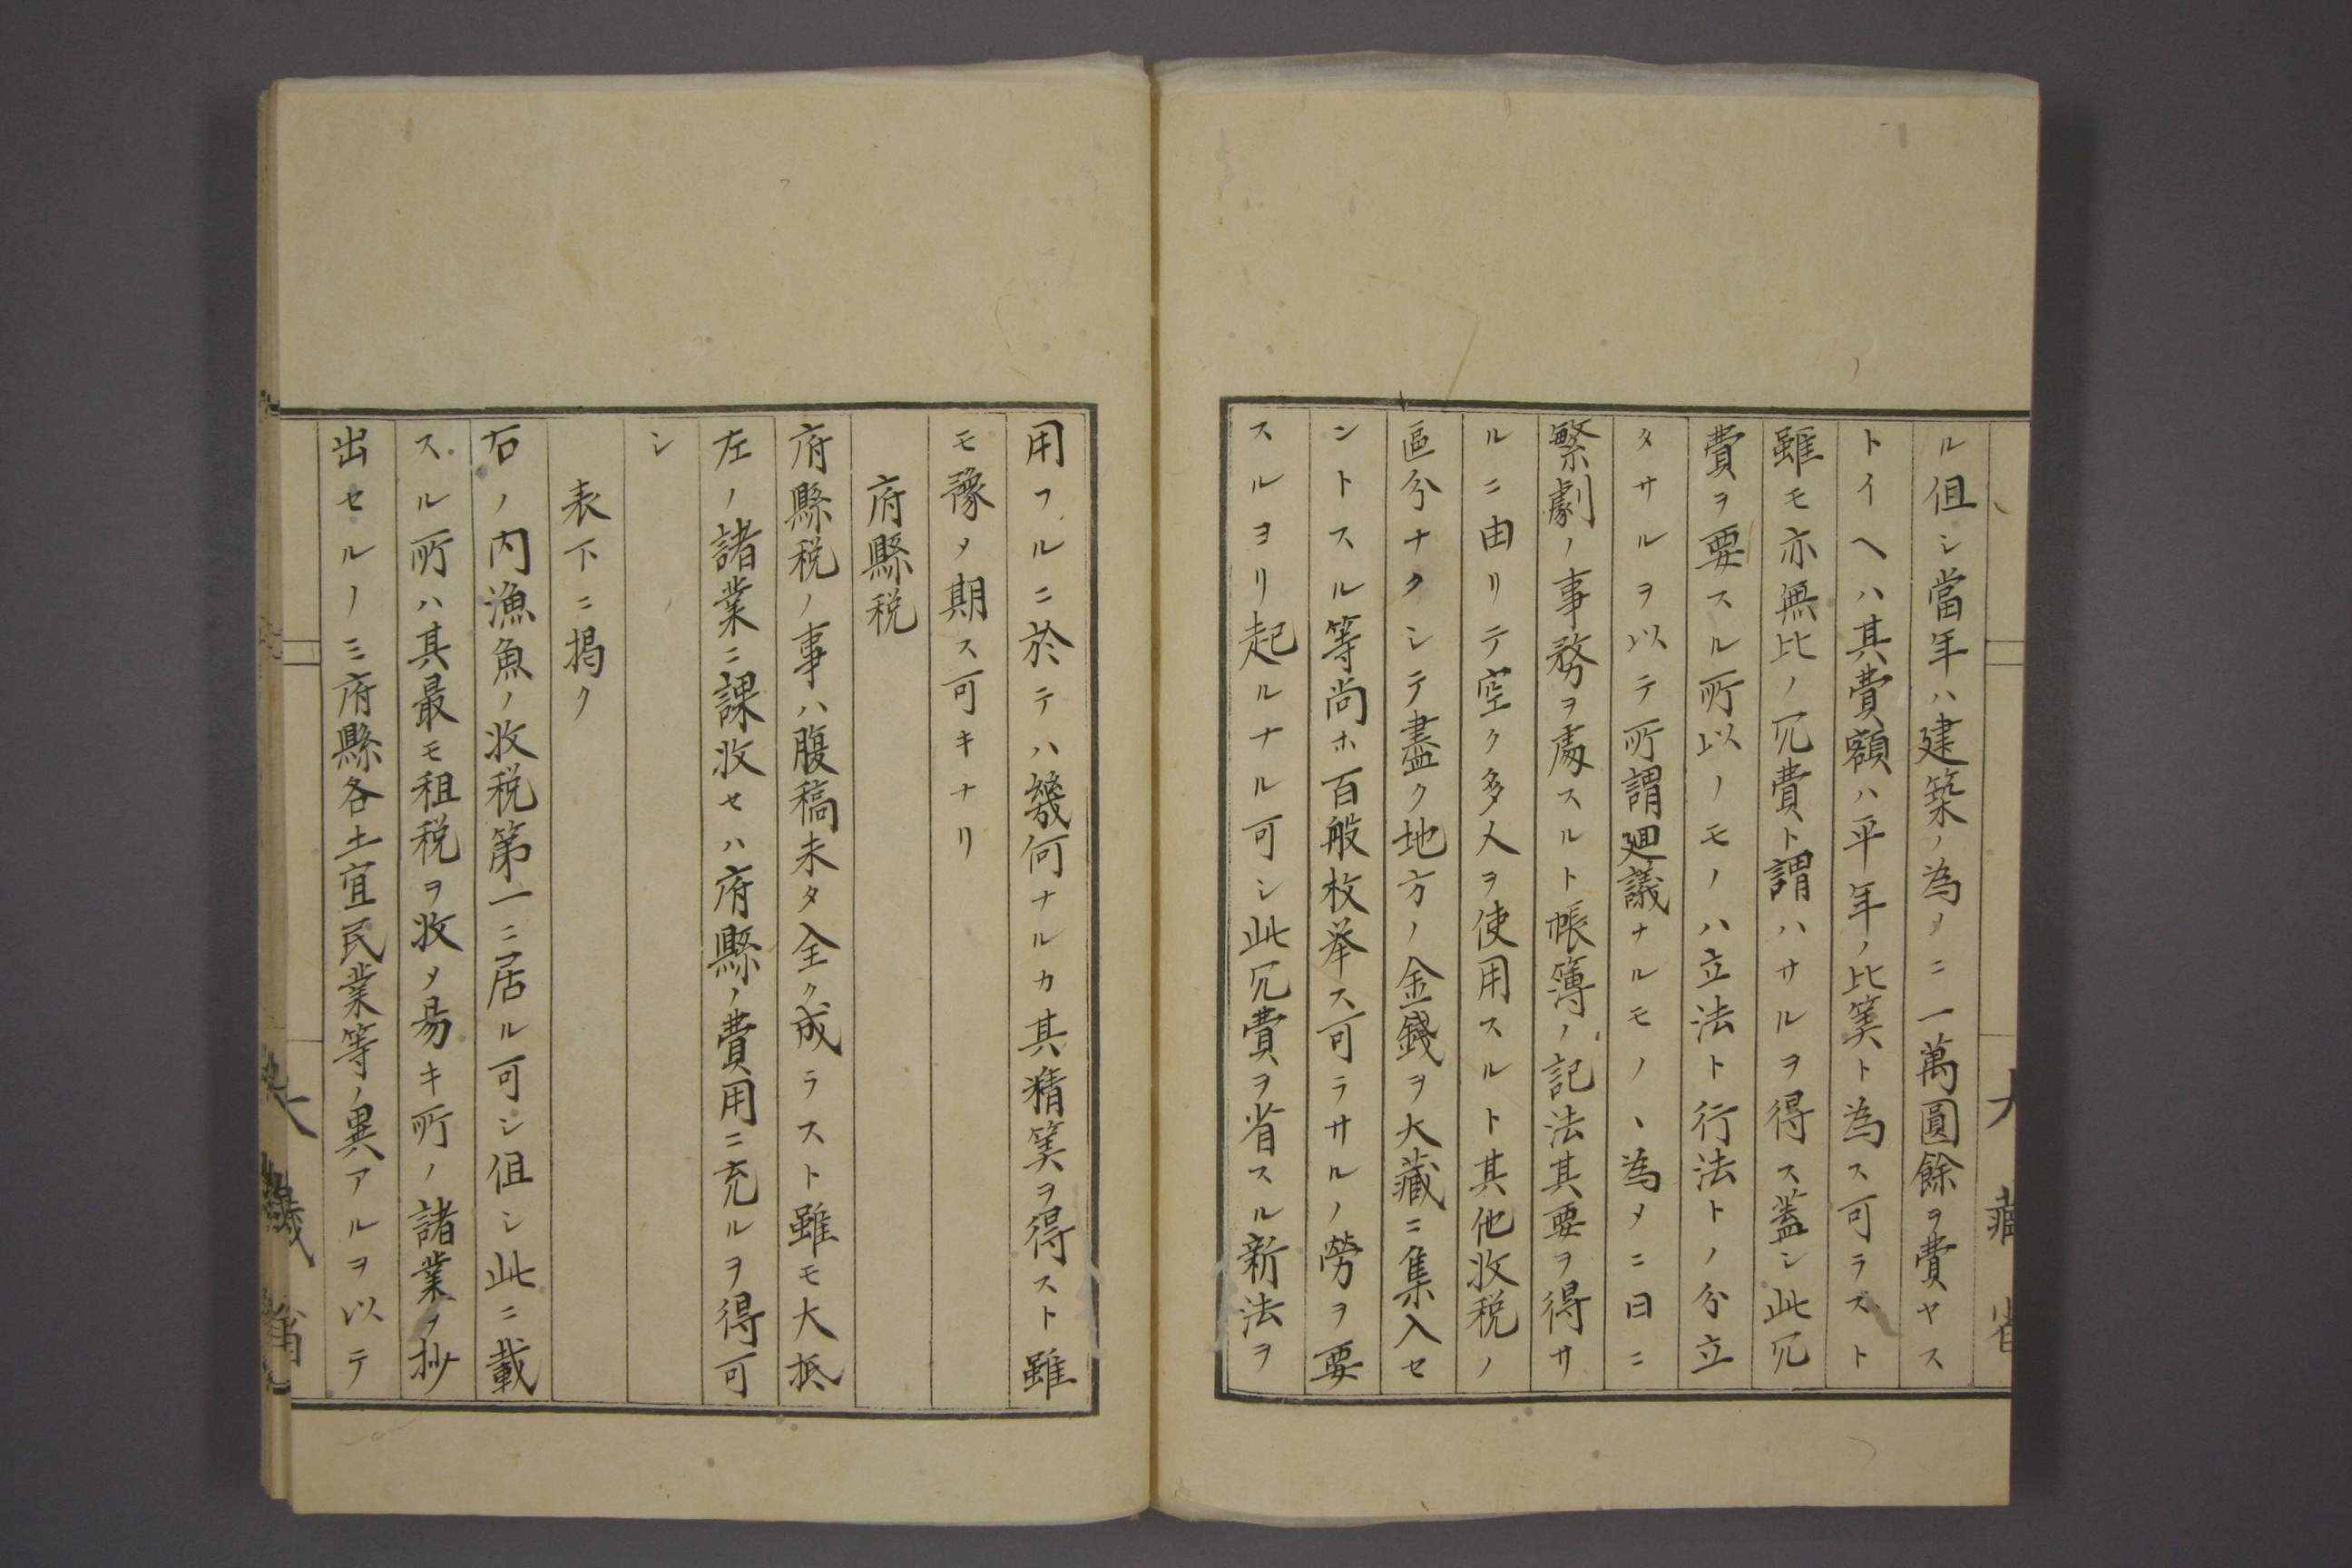 ル但シ當年ハ建築ノ為メニ一萬圓餘ヲ費ヤス
トイヘハ其費額ハ平年ノ比筭ト為ス可ラスト
雖モ亦無比ノ冗費ト謂ハサルヲ得ス蓋シ此冗
費ヲ要スル所以ノモノハ立法ト行法トノ分立
タサルヲ以テ所謂廻議ナルモノヽ為メニ日ニ
繁劇ノ事務ヲ處スルト帳簿ノ記法其要ヲ得サ
ルニ由リテ空ク多人ヲ使用スルト其他收税ノ
區分ナクシテ盡ク地方ノ金錢ヲ大藏ニ集入セ
ントスル等尚ホ百般枚举ス可ラサルノ勞ヲ要
スルヨリ起ルナル可シ此冗費ヲ省スル新法ヲ
大藏省
用フルニ於テハ幾何ナルカ其精筭ヲ得スト雖
モ豫メ期ス可キナリ
府縣税
府縣税ノ事ハ腹稿未タ全ク成ラスト雖モ大抵
左ノ諸業ニ課收セハ府縣ノ費用ニ充ルヲ得可
シ
表下ニ掲ク
右ノ内漁魚ノ收税第一ニ居ル可シ但シ此ニ載
スル所ハ其最モ租税ヲ收メ易キ所ノ諸業ヲ抄
出セルノミ府縣各土宜民業等ノ異アルヲ以テ
大藏省